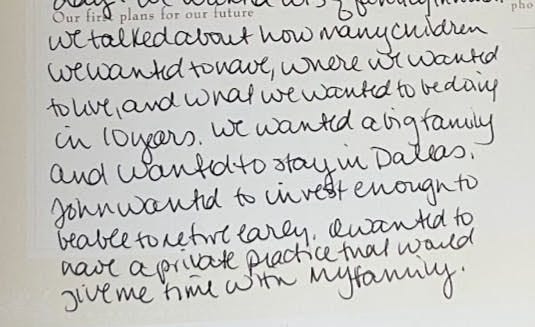 Our first plans for our future
we talked about how many children
we wanted to have, where we wanted
to live, and what we wanted to be doing
in 10 years. We wanted a big family
and wanted to stay in Dallas.
John wanted to invest enough to
be able to retire early. I wanted to
have a private practice that would
give me time with my family.